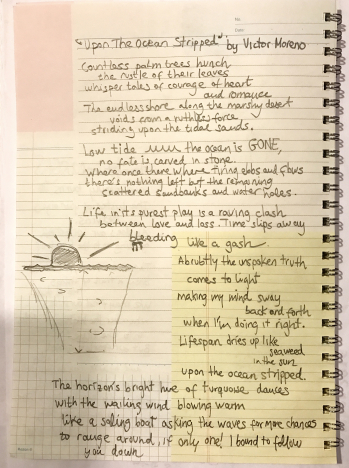 No.
Date
"Upon The Ocean Stripped" by Victor Moreno
Countless palm trees hunch
the rustle of their leaves
whisper tales of courage of heart
and romance
The endless shore along the marshy desert
voids from a ruthless force
striding upon the tidal sands.
Low tide the ocean is GONE,
no fate is carved in stone.
Where once there where firing ebbs and flows
there's nothing left but the remaining
scattered sandbanks and water holes.
Life in its purest play is a roving clash
between love and loss. Time slips away
bleeding like a gash.
Abrubtly the unspoken truth
comes to light
making my mind sway
back and forth
when I'm doing it right.
Lifespan dries up like
seaweed
in the sun
upon the ocean stripped.
The horizon's bright hue of turquoise dances
with the wailing wind blowing warm
like a sailing boat asking the waves for more chances
to range around, if only one! I bound to follow
you down